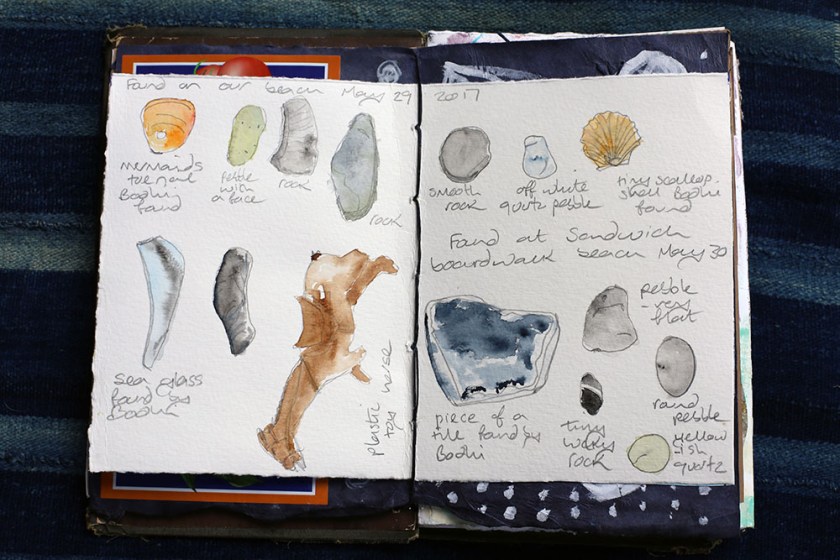 Found on our beach May 29 2017
mermaids
toenail
Bodhi
found
pebble
with
a face
rock
rock
sea glass
found by
Bodhi
plastic horse
toy
smooth
rock
off white
quartz pebble
tiny scallop
shell Bodhi
found
Found at Sandwich
boardwalk beach May 30
pebble
- very
flat
piece of a
tile found by
Bodhi
tiny
rock
round
pebble
yellow
ish
quartz